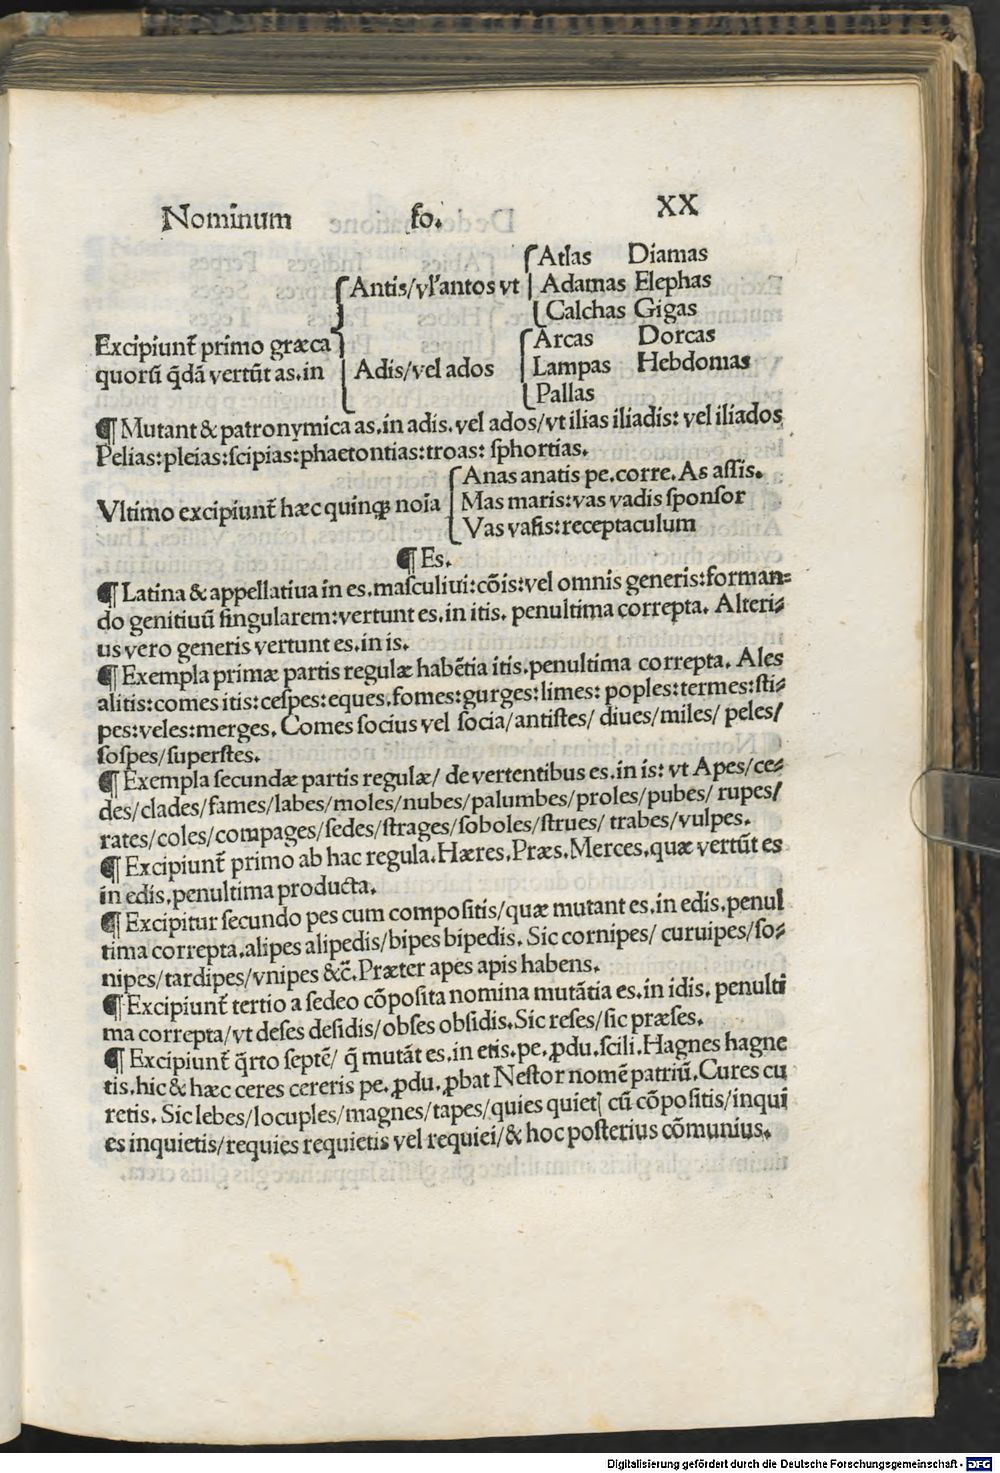 Nomīnum fo. XX
Atlas Diamas
Antis/vl'antos vt Adamas Elephas
Calchas Gigas
Excipiunt̄ primo græca Arcas Dorcas
quorū q̄dā vertūt as.in Adis/vel ados Lampas Hebdomas
Pallas
¶ Mutant & patronymica as.in adis.vel ados/vt ilias iliadis: vel iliados
Pelias:pleias:scipias:phaetontias:troas: sphortias.
Anas anatis pe.corre. As assis.
Vltimo excipiunt̄ hæc quinqꝫ noīa Mas maris:vas vadis sponsor
Vas vasis:receptaculum
¶ Es.
¶ Latina & appellatiua in es.masculiui:cōis:vel omnis generis:forman=
do genitiuū singularem:vertunt es.in itis. penultima correpta. Alteri=
us vero generis vertunt es.in is.
¶ Exempla primæ partis regulæ habētia itis.penultima correpta. Ales
alitis:comes itis:cespes:eques.fomes:gurges:limes: poples:termes:sti=
pes:veles:merges. Comes socius vel socia/antistes/ diues/miles/ peles/
sospes/superstes.
¶ Exempla secundæ partis regulæ/ de vertentibus es.in is: vt Apes/ce=
des/clades/fames/labes/moles/nubes/palumbes/proles/pubes/ rupes/
rates/coles/compages/sedes/strages/soboles/strues/ trabes/vulpes.
¶ Excipiunt̄ primo ab hac regula.Hæres.Præs.Merces.quæ vertūt es
in edis.penultima producta.
¶ Excipitur secundo pes cum compositis/quæ mutant es.in edis.penul
tima correpta.alipes alipedis/bipes bipedis. Sic cornipes/ curuipes/so=
nipes/tardipes/vnipes &c̄. Præter apes apis habens.
¶ Excipiunt̄ tertio a sedeo cōposita nomina mutātia es.in idis. penulti
ma correpta/vt deses desidis/obses obsidis.Sic reses/sic præses.
¶ Excipiunt̄ q̄rto septē/ q̄ mutāt es.in etis.pe.ꝓdu.scili.Hagnes hagne
tis.hic & hæc ceres cereris pe.ꝓdu.ꝓbat Nestor nomē patriū.Cures cu
retis. Sic lebes/locuples/magnes/tapes/quies quiet[ cū cōpositis/inqui
es inquietis/requies requietis vel requiei/& hoc posterius cōmunius.
Digitalisierung gefördert durch die Deutsche Forschungsgemeinschaft - DFG